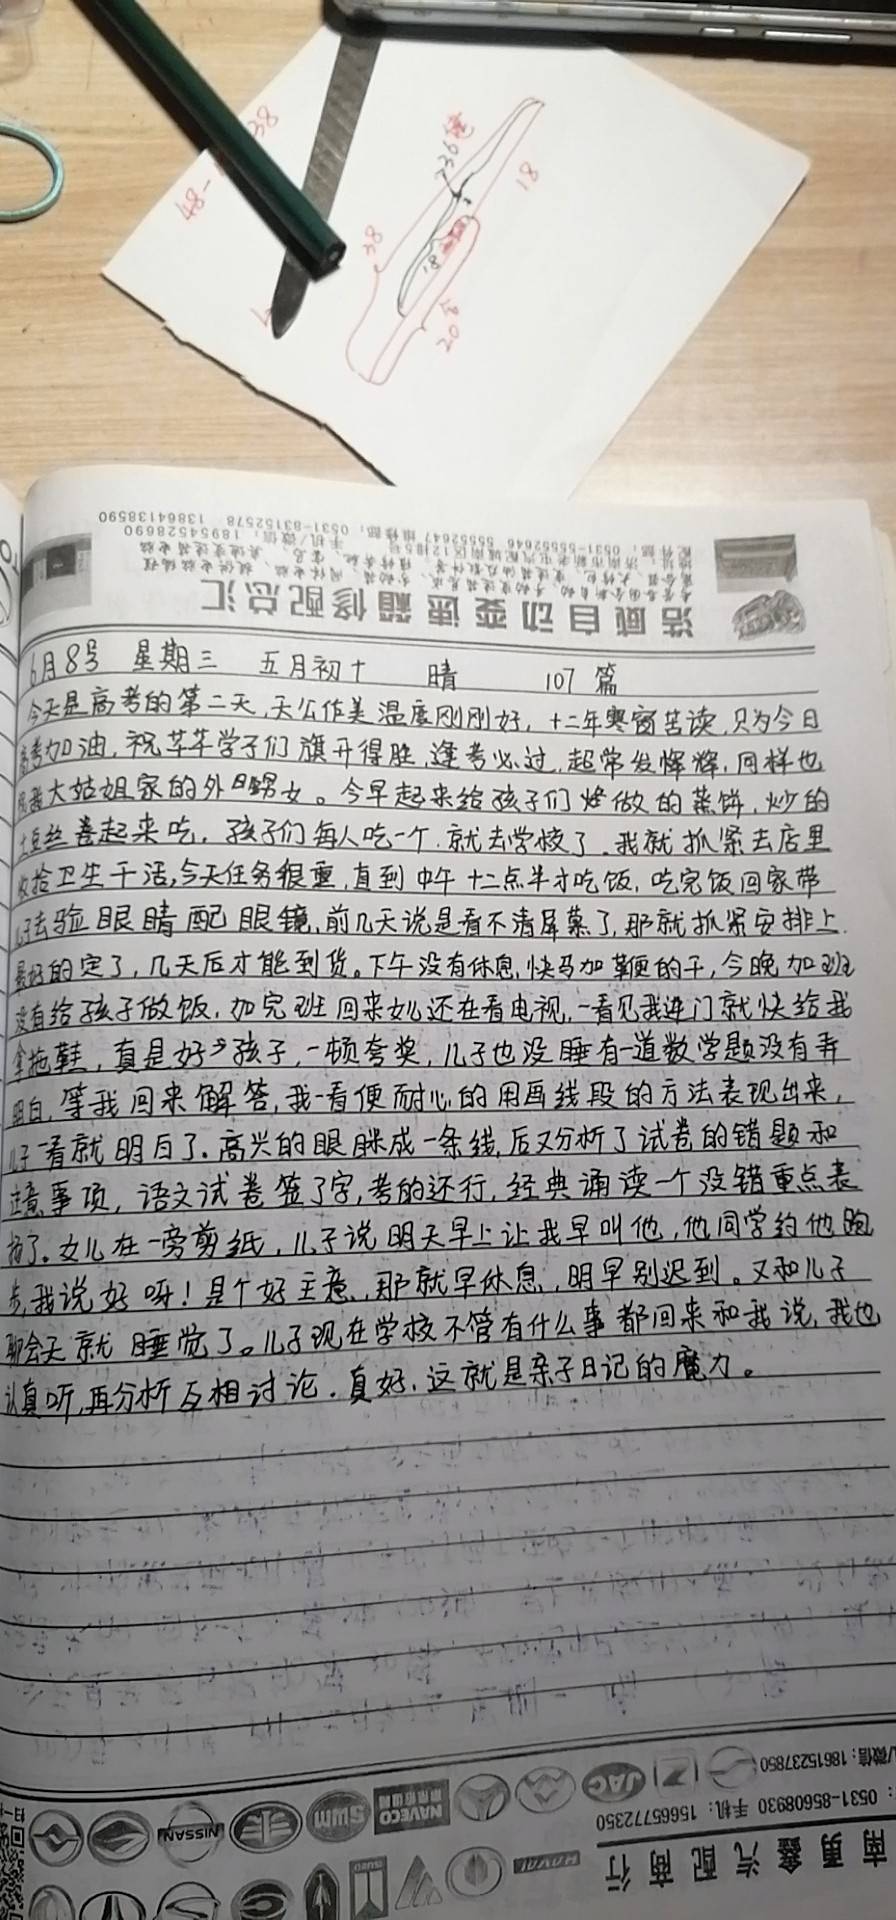 48-
38
236
18
38
18
20
洁威自动变速箱修配总汇
0531-55552646 55552647
0531-83152578 13864138590
手机/微信：18954528690
6月8号 星期三 五月初十 晴 107篇
今天是高考的第二天，天公作美温度刚刚好，十二年寒窗苦读，只为今日
高考加油，祝莘莘学子们旗开得胜，逢考必过，超常发挥辉，同样也
祝我大姑姐家的外甥女。今早起来给孩子们烙做的蒸饼，炒的
土豆丝卷起来吃，孩子们每人吃一个，就去学校了。我就抓紧去店里
收拾卫生干活，今天任务很重，直到中午十二点半才吃饭，吃完饭回家带
儿子去验眼睛配眼镜，前几天说是看不清屏幕了，那就抓紧安排上
最好的定了，几天后才能到货。下午没有休息，快马加鞭的干，今晚加班
没有给孩子做饭，加完班回来女儿还在看电视，一看见我进门就快给我
拿拖鞋，真是好孩子，一顿夸奖，儿子也没睡有一道数学题没有弄
明白，等我回来解答，我一看便耐心的用画线段的方法表现出来，
儿子一看就明白了。高兴的眼眯成一条线，后又分析了试卷的错题和
注意事项，语文试卷签了字，考的还行，经典诵读一个没错重点表
扬了。女儿在一旁剪纸，儿子说明天早上让我早叫他，他同学约他跑
步，我说好呀！是个好主意，那就早休息，明早别迟到。又和儿子
聊会天就睡觉了。儿子现在学校不管有什么事都回来和我说，我也
认真听，再分析互相讨论。真好，这就是亲子日记的魔力。
南勇鑫汽配商行
：0531-85608930 手机：15665772350
/微信：18615237850
HAVAL
ISUZU
JAC
NAVECO
SWM
NISSAN
扫一扫